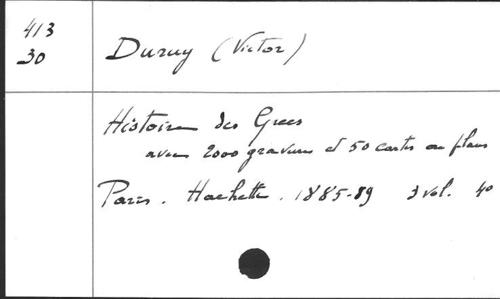 413
30
Duruy (Victor)
Histoire des Grecs
avec 2000 gravures et 50 cartes ou plans
Paris. Hachette. 1885-89 3 vol. 4o